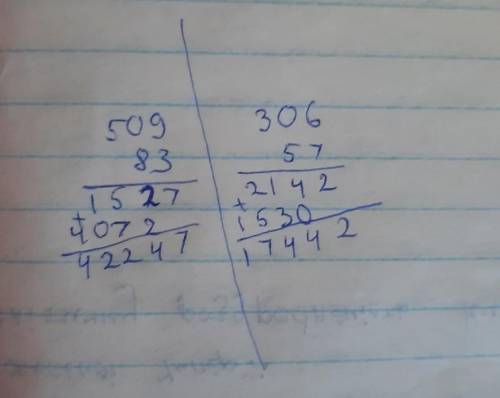 509
83
1527
+
4072
42247
306
57
2142
+
1530
17442